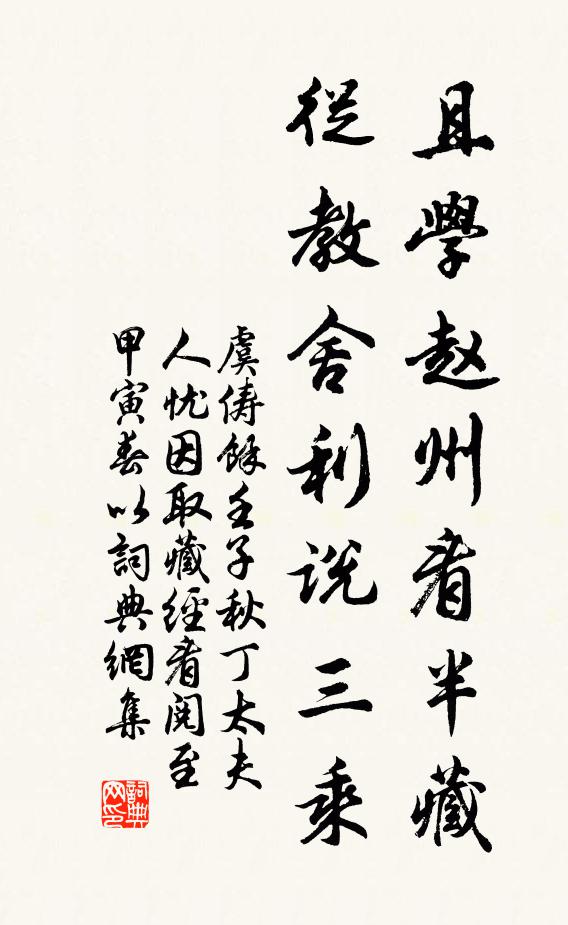 且學赵州看半藏
從教舍利说三乘
虞俦餘壬子秋丁太夫
人忧因取藏經看閱至
甲寅春以詞典網集
詞典
网印